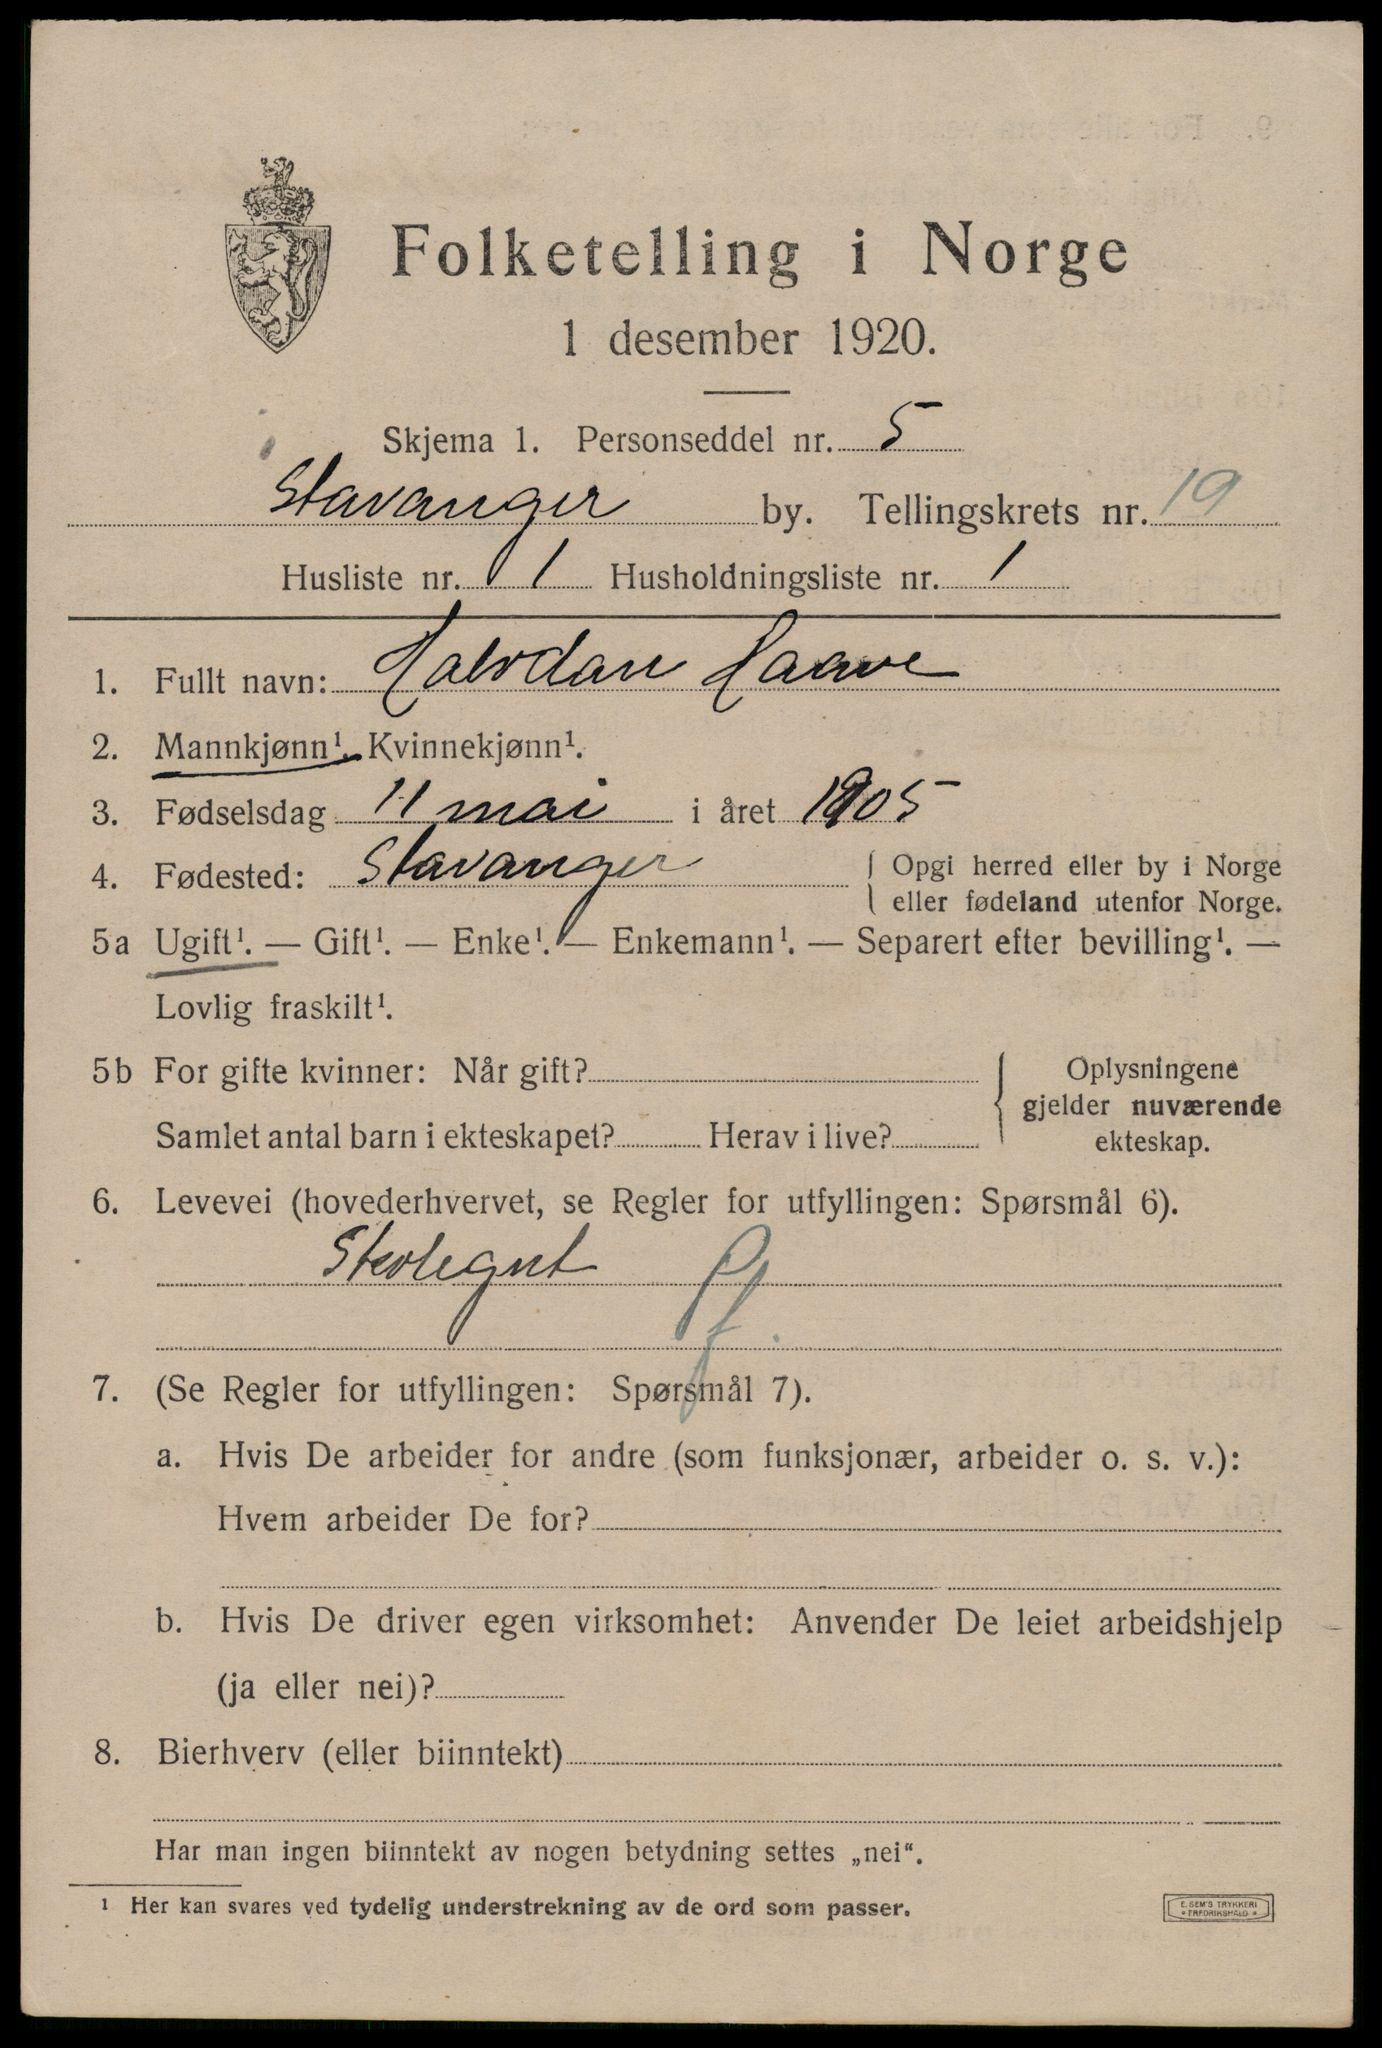 Folketelling i Norge
1 desember 1920.
Skjema 1. Personseddel nr. 5
Stavanger by. Tellingskrets nr. 19
Husliste nr. 1 Husholdningsliste nr. 1
1. Fullt navn: Halvdan Haave
2. Mannkjønn¹. Kvinnekjønn¹.
3. Fødselsdag 11 mai i året 1905
4. Fødested: Stavanger { Opgi herred eller by i Norge
eller fødeland utenfor Norge.
5a Ugift¹. — Gift¹. — Enke¹. — Enkemann¹. — Separert efter bevilling¹. —
Lovlig fraskilt¹.
5b For gifte kvinner: Når gift? { Oplysningene
gjelder nuværende
Samlet antal barn i ekteskapet? Herav i live? ekteskap.
6. Levevei (hovederhvervet, se Regler for utfyllingen: Spørsmål 6).
Skolegut
7. (Se Regler for utfyllingen: Spørsmål 7).
a. Hvis De arbeider for andre (som funksjonær, arbeider o. s. v.):
Hvem arbeider De for?
b. Hvis De driver egen virksomhet: Anvender De leiet arbeidshjelp
(ja eller nei)?
8. Bierhverv (eller biinntekt)
Har man ingen biinntekt av nogen betydning settes „nei“.
¹ Her kan svares ved tydelig understrekning av de ord som passer.
E. SEM'S TRYKKERI
* FREDRIKSHALD *